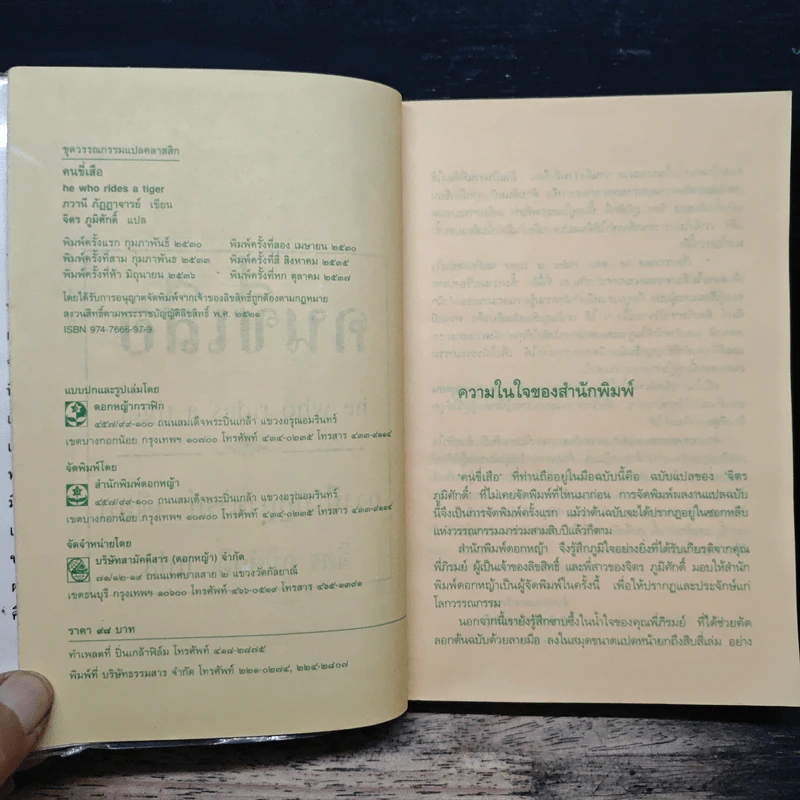 ชุดวรรณกรรมแปลคลาสสิก
คนขี่เสือ
he who rides a tiger
ภวานี ภัฏฏาจารย์ เขียน
จิตร ภูมิศักดิ์ แปล
พิมพ์ครั้งแรก กุมภาพันธ์ ๒๕๓๐ พิมพ์ครั้งที่สอง เมษายน ๒๕๓๐
พิมพ์ครั้งที่สาม กุมภาพันธ ๒๕๓๓ พิมพ์ครั้งที่สี่ สิงหาคม ๒๕๓๕
พิมพ์ครั้งที่ห้า มิถุนายน ๒๕๓๖ พิมพ์ครั้งที่หก ตุลาคม ๒๕๓๗
โดยได้รับการอนุญาตจัดพิมพ์จากเจ้าของลิขสิทธิ์ถูกต้องตามกฎหมาย
สงวนสิทธิ์ตามพระราชบัญญัติลิขสิทธิ์ พ.ศ. ๒๕๒๑
ISBN 974-7666-97-9
แบบปกและรูปเล่มโดย
ดอกหญ้ากราฟิก
๔๕๗/๙๙-๑๐๐ ถนนสมเด็จพระปิ่นเกล้า แขวงอรุณอมรินทร์
เขตบางกอกน้อย กรุงเทพฯ ๑๐๗๐๐ โทรศัพท์ ๔๓๔-๐๒๓๕ โทรสาร ๔๓๓-๙๑๑๔
จัดพิมพ์โดย
สำนักพิมพ์ดอกหญ้า
๔๕๗/๙๙-๑๐๐ ถนนสมเด็จพระปิ่นเกล้า แขวงอรุณอมรินทร์
เขตบางกอกน้อย กรุงเทพฯ ๑๐๗๐๐ โทรศัพท์ ๔๓๔-๐๒๓๕ โทรสาร ๔๓๓-๙๑๑๔
จัดจำหน่ายโดย
บริษัทสามัคคีสาร (ดอกหญ้า) จำกัด
๗๑/๑๒-๑๙ ถนนเทศบาลสาย ๒ แขวงวัดกัลยาณ์
เขตธนบุรี กรุงเทพฯ ๑๐๖๐๐ โทรศัพท์ ๔๖๖-๐๕๑๙ โทรสาร ๔๖๕-๑๓๙๑
ราคา ๙๘ บาท
ทำเพลตที่ ปิ่นเกล้าฟิล์ม โทรศัพท์ ๔๑๘-๒๘๗๕
พิมพ์ที่ บริษัทธรรมสาร จำกัด โทรศัพท์ ๒๒๑-๐๒๗๔, ๒๒๔-๒๘๐๗
ความในใจของสำนักพิมพ์
'คนขี่เสือ' ที่ท่านถืออยู่ในมือฉบับนี้คือ ฉบับแปลของ 'จิตร
ภูมิศักดิ์' ที่ไม่เคยจัดพิมพ์ที่ไหนมาก่อน การจัดพิมพ์ผลงานแปลฉบับ
นี้จึงเป็นการจัดพิมพ์ครั้งแรก แม้ว่าต้นฉบับจะได้ปรากฏอยู่ในซอกหลืบ
แห่งวรรณกรรมมาร่วมสามสิบปีแล้วก็ตาม
สำนักพิมพ์ดอกหญ้า จึงรู้สึกภูมิใจอย่างยิ่งที่ได้รับเกียรติจากคุณ
พี่ภิรมย์ ผู้เป็นเจ้าของลิขสิทธิ์ และพี่สาวของจิตร ภูมิศักดิ์ มอบให้สำนัก
พิมพ์ดอกหญ้าเป็นผู้จัดพิมพ์ในครั้งนี้ เพื่อให้ปรากฏและประจักษ์แก่
โลกวรรณกรรม
นอกจากนี้เรายังรู้สึกซาบซึ้งในน้ำใจของคุณพี่ภิรมย์ ที่ได้ช่วยคัด
ลอกต้นฉบับด้วยลายมือ ลงในสมุดขนาดแปดหน้ายกถึงสิบสี่เล่ม อย่าง